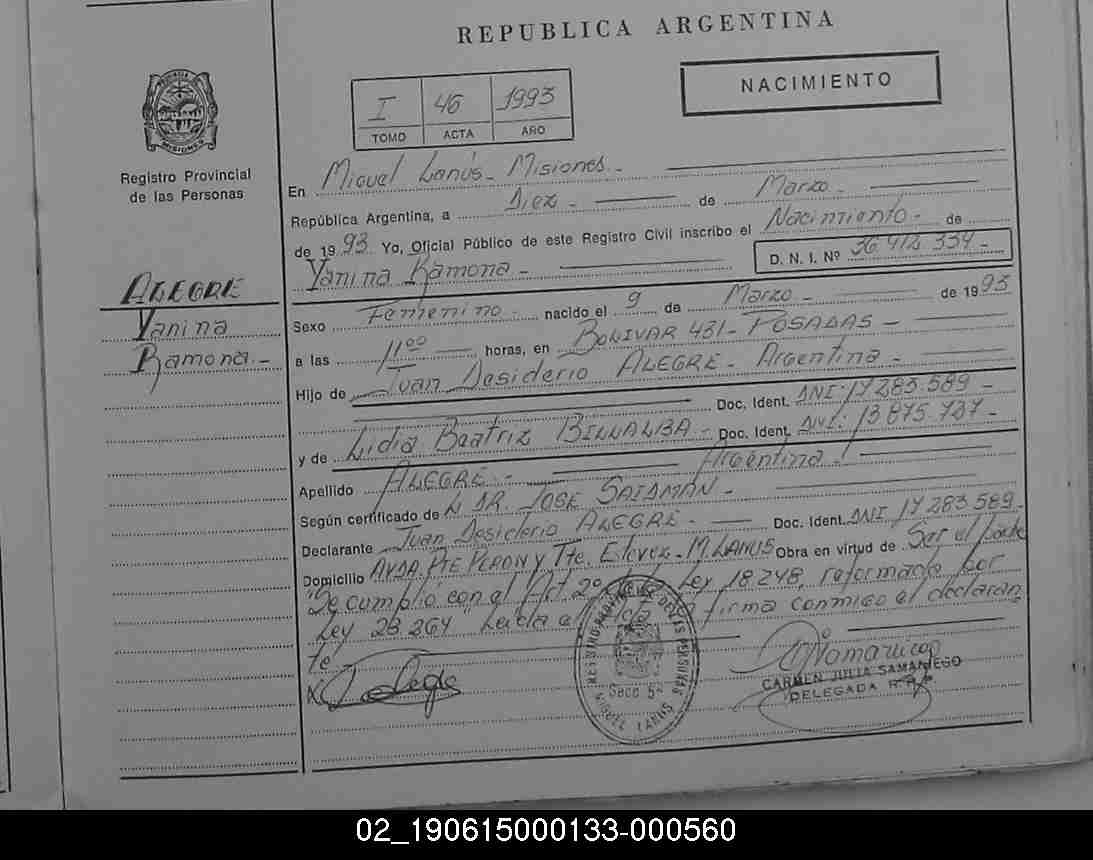 REPUBLICA ARGENTINA
NACIMIENTO
I 46 1993
TOMO ACTA AÑO
PROVINCIA DE MISIONES
Registro Provincial
de las Personas
ALEGRE
Yanina
Ramona.-
En Miguel Lanús - Misiones.-
República Argentina, a Diez - de Marzo -
de 1993 Yo, Oficial Público de este Registro Civil inscribo el Nacimiento - de
Yanina Ramona - D. N. I. Nº 36 412 334 -
Sexo Femenino - nacido el 9 de Marzo - de 1993
a las 11°° horas, en BOLIVAR 431 - POSADAS -
Hijo de Juan Desiderio ALEGRE - Argentina -
Doc. Ident. DNI: 17 283.589 -
y de Lidia Beatriz BILLALBA - Doc. Ident. DNI: 13 875.737 -
Apellido ALEGRE - Argentina -
Según certificado de L DR. JOSE SAIDMAN -
Declarante Juan Desiderio ALEGRE - Doc. Ident. DNI 17 283.589 -
Domicilio AVDA. PTE PERON Y Tte. Estevez - M. LANUS Obra en virtud de Ser el padre
"Se cumplió con el Art 2º Ley 18.248, reformado por
Ley 23.264" Leída el firma conmigo el declaran
te -
CARMEN JULIA SAMANIEGO
DELEGADA R.P.P.
Secc 5ª
MIGUEL LANUS
02_190615000133-000560